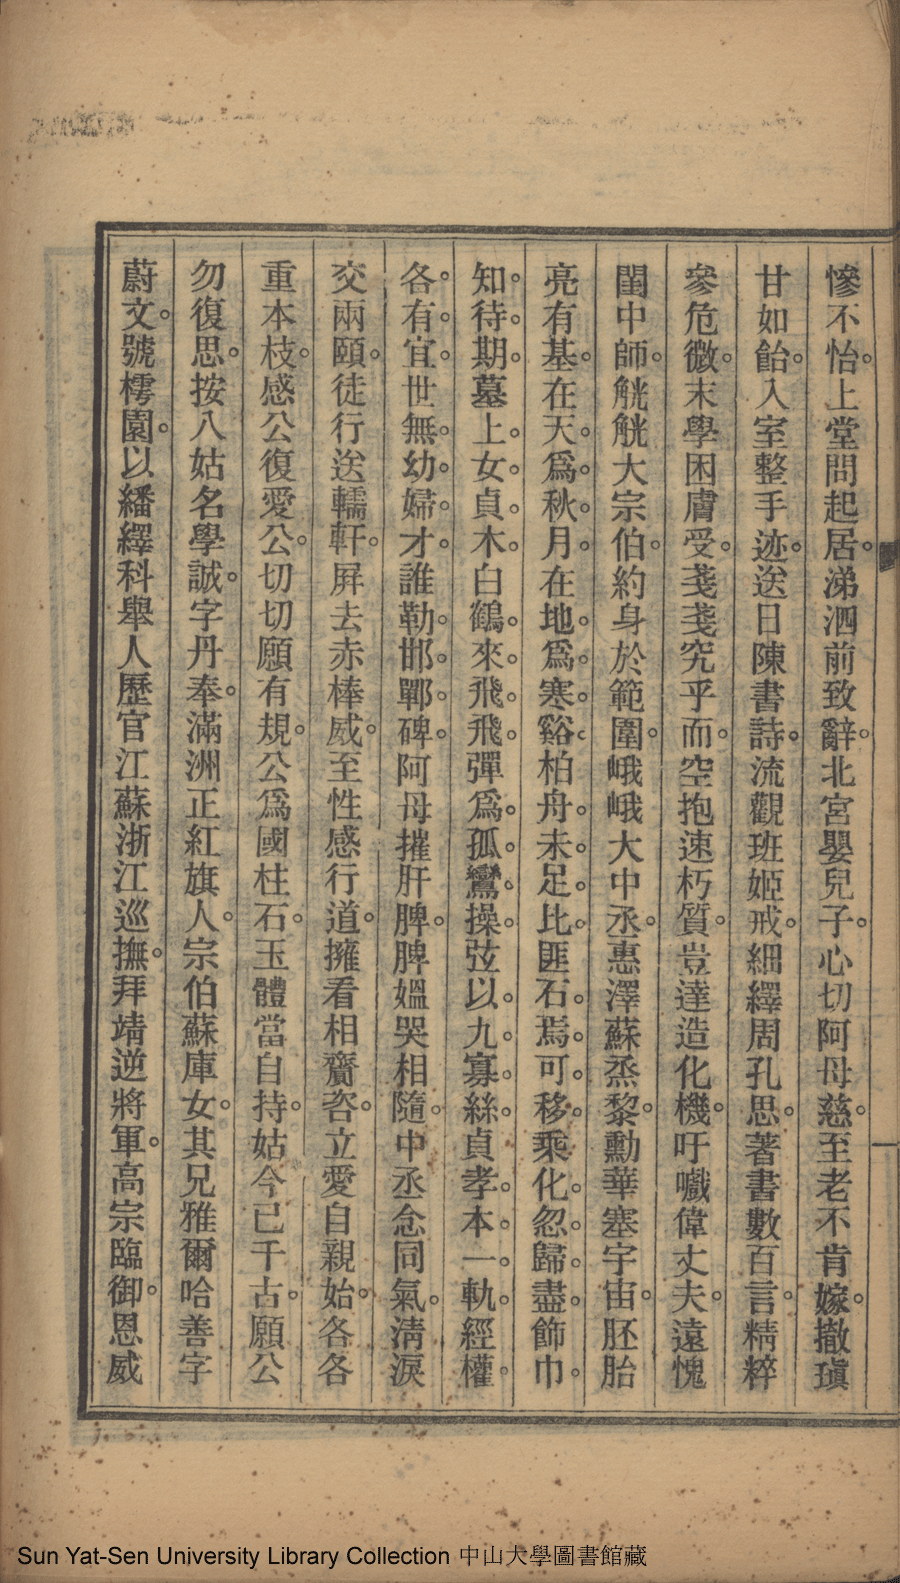 慘不怡。上堂問起居。涕泗前致辭。北宮嬰兒子。心切阿母慈。至老不肯嫁。撤瑱
甘如飴。入室整手迹。送日陳書詩。流觀班姬戒。細繹周孔思。著書數百言。精粹
參危微。末學困膚受。戔戔究乎而。空抱速朽質。豈達造化機。吁嚱偉丈夫。遠愧
閨中師。觥觥大宗伯。約身於範圍。峨峨大中丞。惠澤蘇烝黎。勳華塞宇宙。胚胎
亮有基。在天。爲秋。月。在地。爲。寒。谿。柏舟。未。足。比。匪石。焉。可。移。乘化。忽。歸。盡。飾巾。
知。待。期。墓上。女。貞。木。白鶴。來。飛。飛。彈爲。孤。鸞。操。弦以。九。寡。絲。貞孝。本。一。軌。經權。
各。有。宜。世無。幼。婦。才。誰勒。邯。鄲。碑。阿母摧肝脾。脾媼哭相隨。中丞念同氣。淸淚
交兩頤。徒行送轜軒。屏去赤棒威。至性感行道。擁看相齎咨。立愛自親始。各各
重本枝。感公復愛公。切切願有規。公爲國柱石。玉體當自持。姑今已千古。願公
勿復思。按八姑名學誠。字丹奉。滿洲正紅旗人。宗伯蘇庫女。其兄雅爾哈善字
蔚文。號樗園。以繙繹科舉人歷官江蘇浙江巡撫。拜靖逆將軍。高宗臨御。恩威
Sun Yat-Sen University Library Collection 中山大學圖書館藏